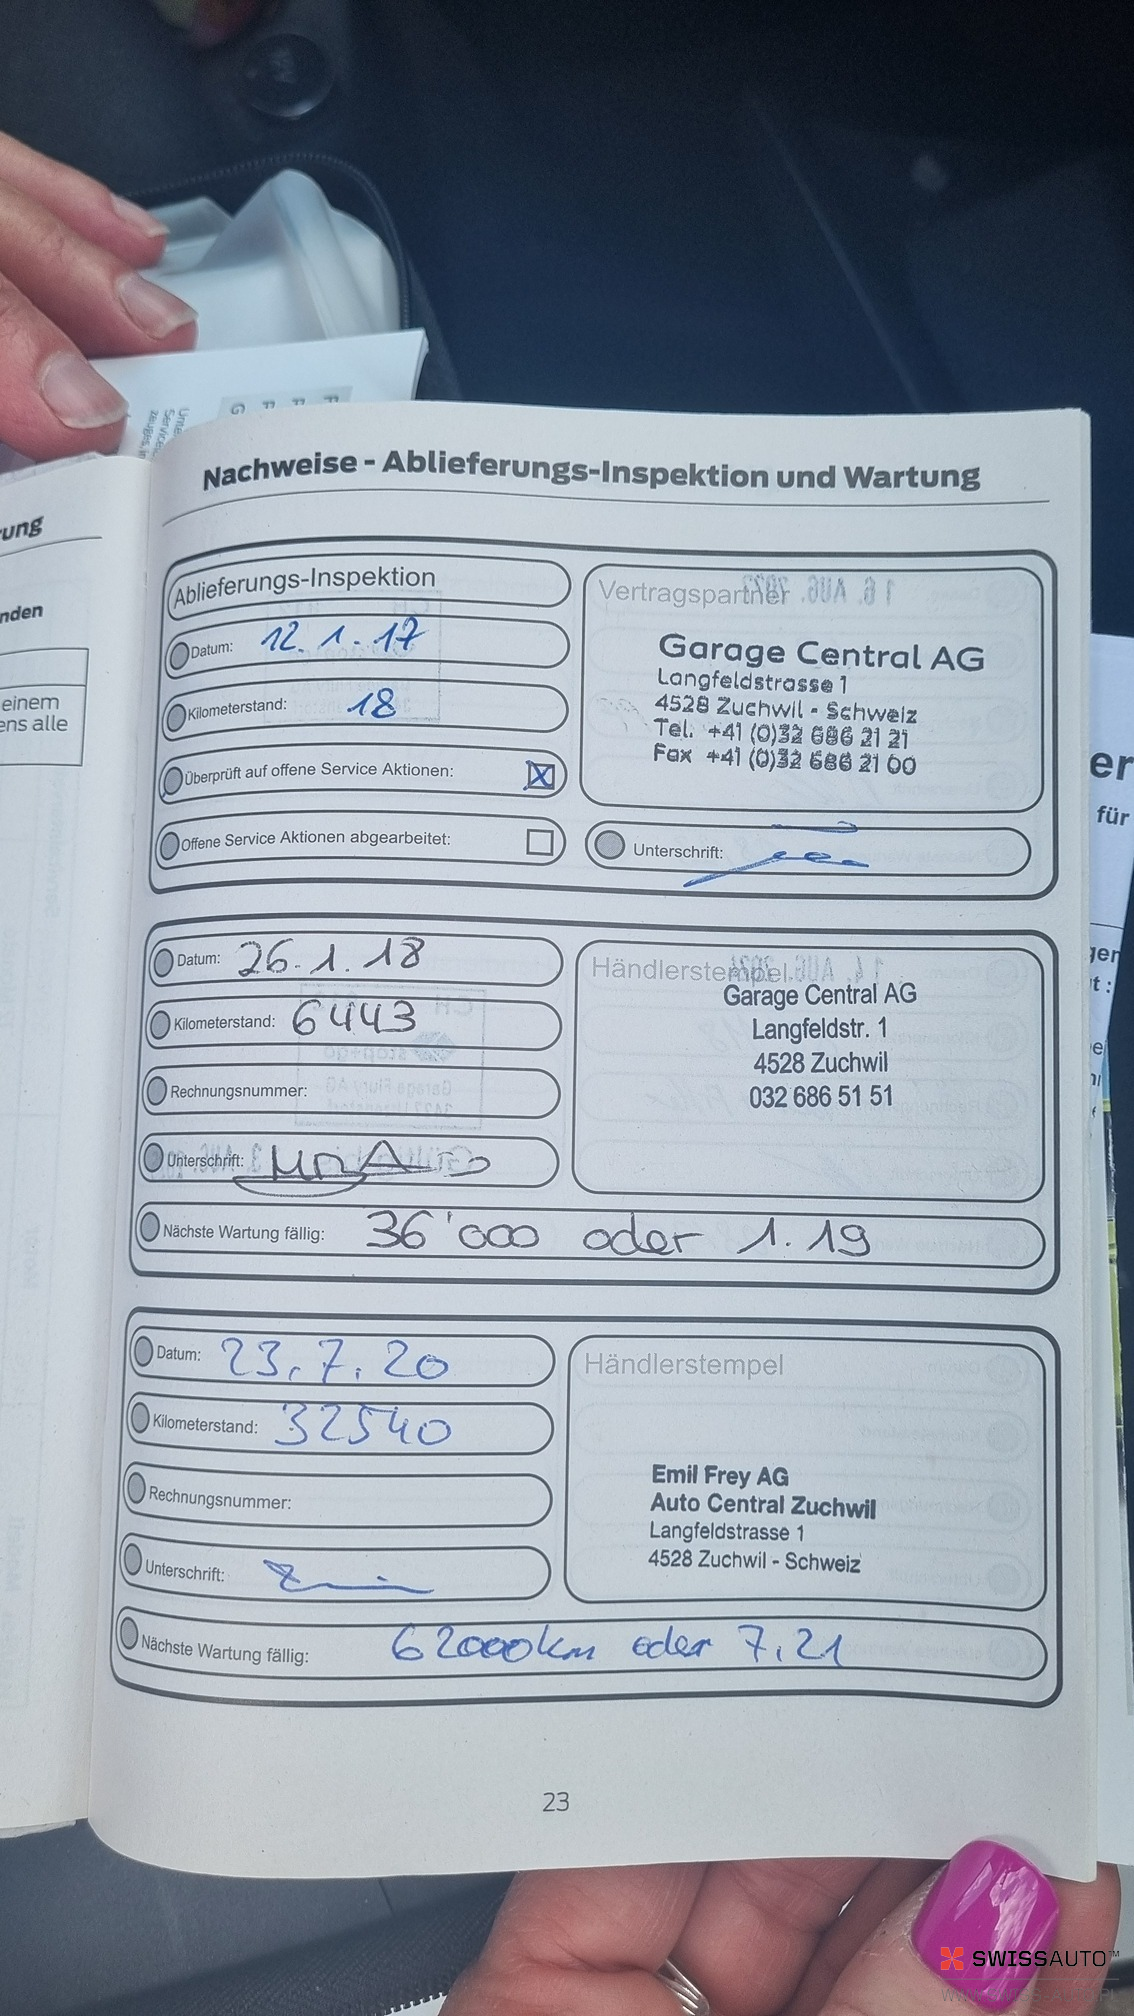 Nachweise - Ablieferungs-Inspektion und Wartung
rung
nden
einem
ens alle
Ablieferungs-Inspektion
Datum: 12.1.17
Kilometerstand: 18
Überprüft auf offene Service Aktionen: X
Offene Service Aktionen abgearbeitet:
Vertragspartner
Garage Central AG
Langfeldstrasse 1
4528 Zuchwil - Schweiz
Tel. +41 (0)32 686 21 21
Fax +41 (0)32 686 21 00
Unterschrift:
Datum: 26.1.18
Kilometerstand: 6443
Rechnungsnummer:
Unterschrift:
Händlerstempel
Garage Central AG
Langfeldstr. 1
4528 Zuchwil
032 686 51 51
Nächste Wartung fällig: 36'000 oder 1.19
Datum: 23.7.20
Kilometerstand: 32540
Rechnungsnummer:
Unterschrift:
Händlerstempel
Emil Frey AG
Auto Central Zuchwil
Langfeldstrasse 1
4528 Zuchwil - Schweiz
Nächste Wartung fällig: 62000km oder 7.21
23
er
für
SWISSAUTO™